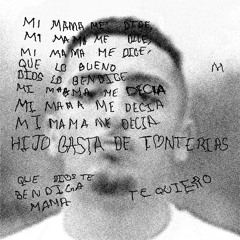 MI MAMA ME DICE,
MI MAMA ME DICE,
MI MAMA ME DICE,
QUE LO BUENO
DIOS LO BENDICE
MI MAMA ME DECIA
MI MAMA ME DECIA
MI MAMA ME DECIA
HIJO BASTA DE TONTERIAS
QUE DIOS TE
BENDIGA
MAMA
TE QUIERO
M